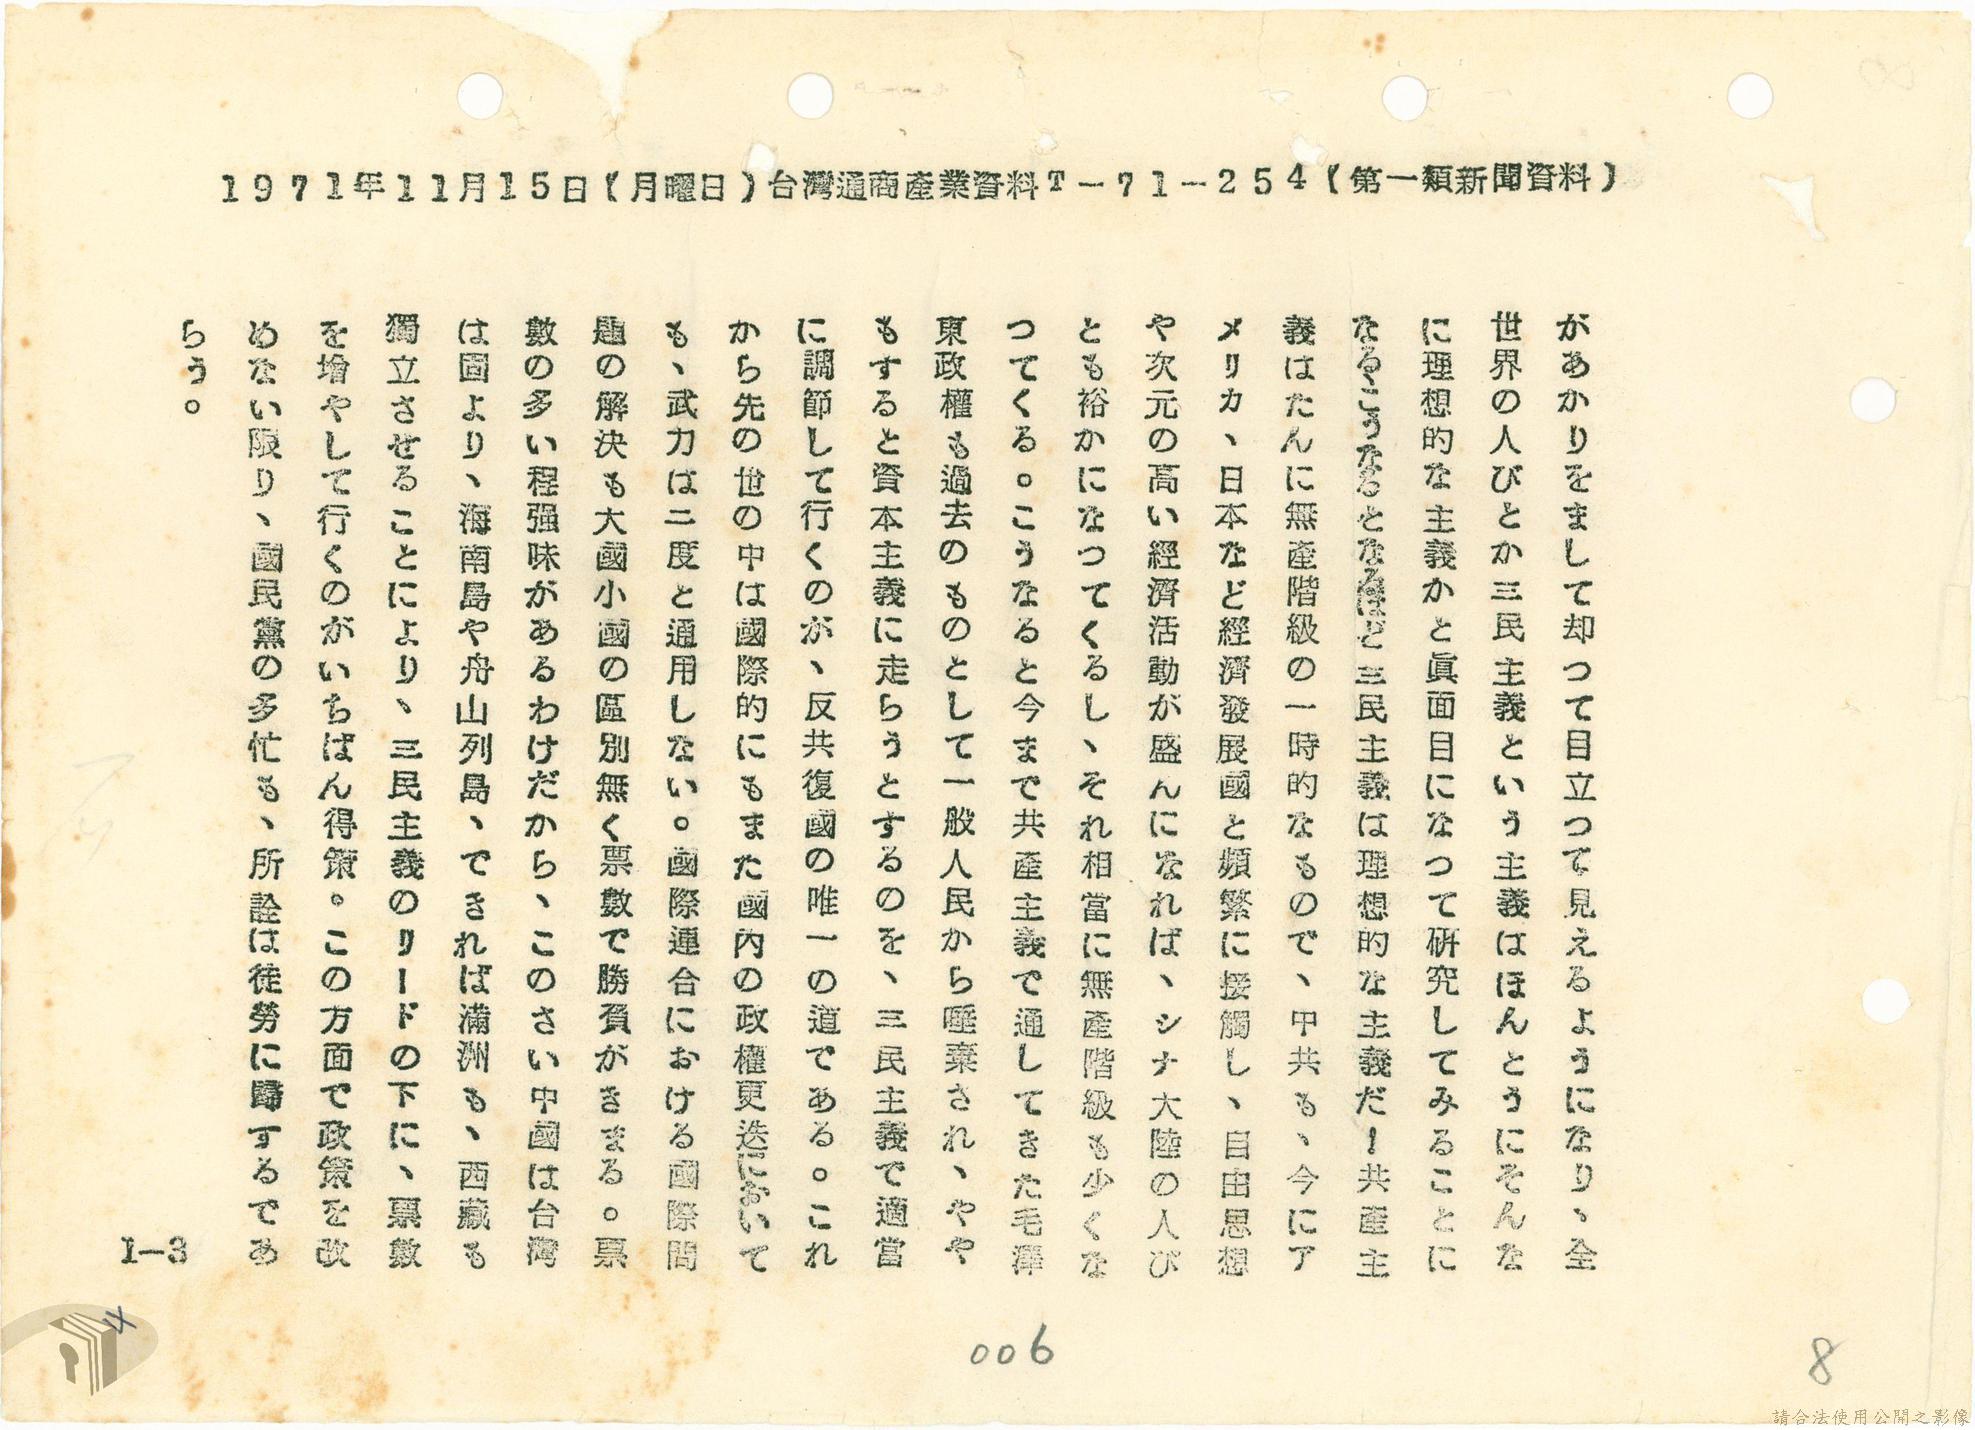 1971年11月15日(月曜日)台灣通商產業資料T－71－254(第一類新聞資料)
があかりをまして却つて目立つて見えるようになり、全
世界の人びとか三民主義という主義はほんとうにそんな
に理想的な主義かと眞面目になつて研究してみることに
なる。こうなるとなるほど三民主義は理想的な主義だ！共產主
義はたんに無產階級の一時的なもので、中共も、今にア
メリカ、日本など經濟發展國と頻繁に接觸し、自由思想
や次元の高い經濟活動が盛んになれば、シナ大陸の人び
とも裕かになつてくるし、それ相當に無產階級も少くな
つてくる。こうなると今まで共產主義で通してきた毛澤
東政權も過去のものとして一般人民から唾棄され、やや
もすると資本主義に走らうとするのを、三民主義で適當
に調節して行くのが、反共復國の唯一の道である。これ
から先の世の中は國際的にもまた國內の政權更迭において
も、武力は二度と通用しない。國際連合における國際問
題の解決も大國小國の區別無く票數で勝負がきまる。票
數の多い程强味があるわけだから、このさい中國は台灣
は固より、海南島や舟山列島、できれば滿洲も、西藏も
獨立させることにより、三民主義のリードの下に、票數
を增やして行くのがいちばん得策。この方面で政策を改
めない限り、國民黨の多忙も、所詮は徒勞に歸するであ
らう。
1－3
006
8
請合法使用公開之影像